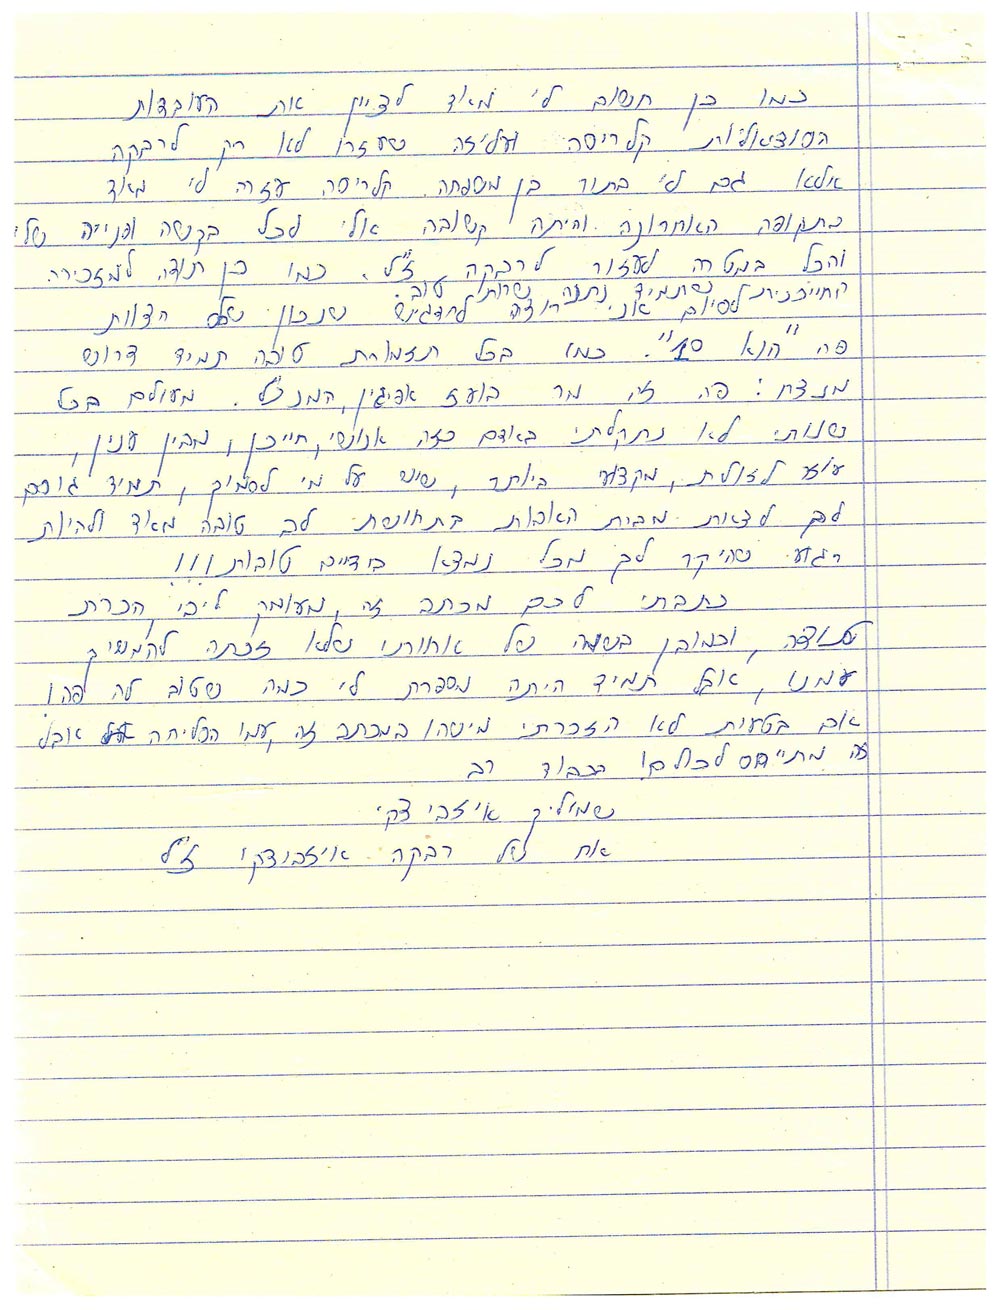 כמו כן חשוב לי מאוד לציין את העובדות
הסוציאליות קלריסה ועליזה שעזרו לא רק לרבקה
אלא גם לי בתור בן משפחה. קלריסה עזרה לי מאוד
בתקופה האחרונה והיתה קשובה אלי לכל בקשה ופנייה שלי
והכל במטרה לעזור לרבקה ז"ל. כמו כן תודה למזכירה
החייכנית שתמיד נתנה שרות טוב.
לסיום אני רוצה להדגיש שנכון של הצוות
פה "הוא 10". כמו בכל תזמורת טובה תמיד דרוש
מנצח: פה זה מר בועז אפיגין, המנכ"ל. מעולם בכל
שנותי לא נתקלתי באדם כזה אנושי, חייכן, מבין ענין,
עוזר לזולת, מקצועי ביותר, שיש על מי לסמוך, תמיד גורם
לך לצאת מבית האבות בתחושת לב טובה מאוד ולהיות
רגוע שהיקר לך מכל נמצא בידיים טובות!!!
כתבתי לכם מכתב זה, מעומק ליבי, הכרת
תודה, וכמובן בשמה של אחותי שלא זכתה להמשיך
עמנו, אבל תמיד היתה מספרת לי כמה שטוב לה פה!
אם בטעות לא הזכרתי מישהו במכתב זה, עמו הסליחה אבל
זה מתייחס לכולם! בכבוד רב
שמוליק איזביצקי
אח של רבקה איזביצקי ז"ל